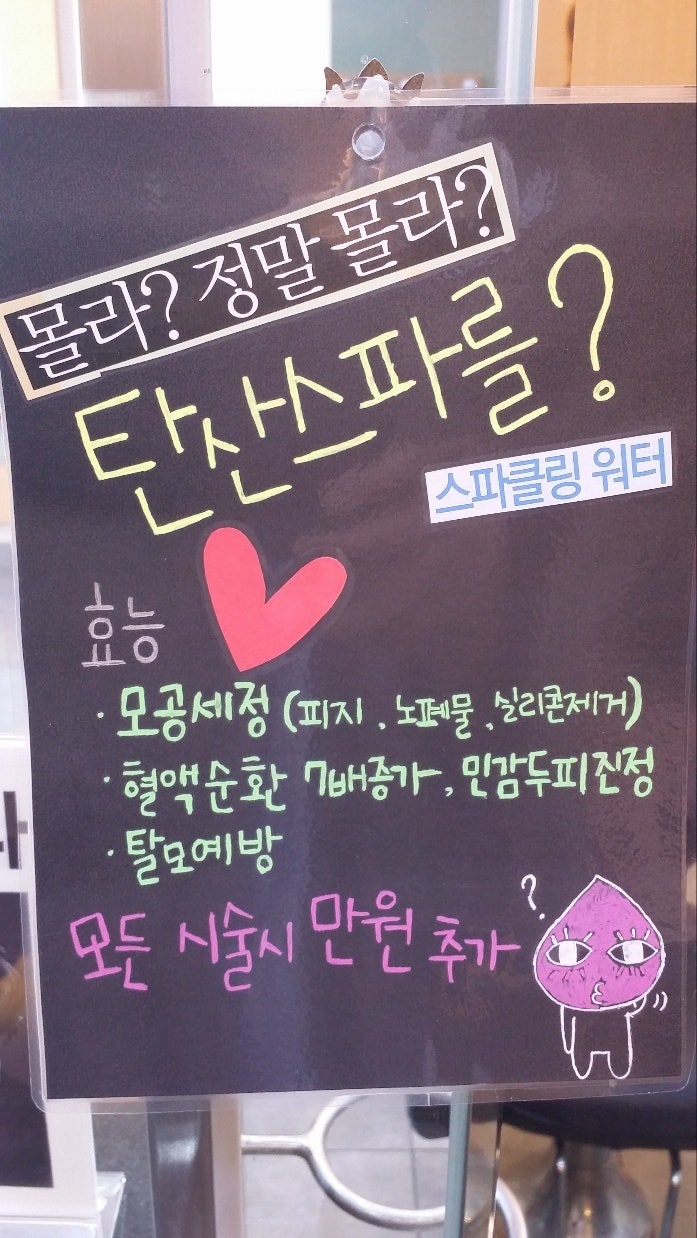 몰라? 정말 몰라?
탄산스파를?
스파클링 워터
효능
· 모공세정 (피지, 노폐물, 실리콘제거)
· 혈액순환 7배증가, 민감두피진정
· 탈모예방
모든 시술시 만원 추가
?